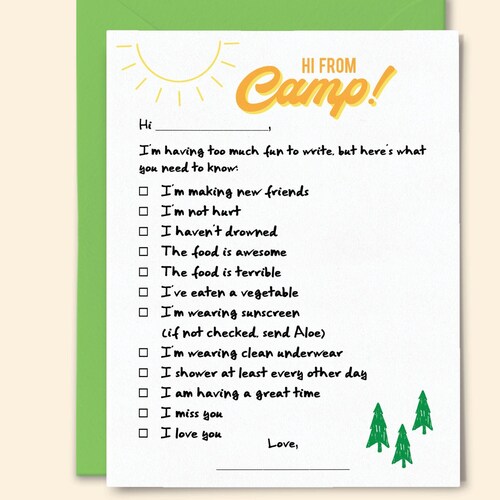 HI FROM
Camp!
Hi ____________________,
I'm having too much fun to write, but here's what
you need to know:
☐ I'm making new friends
☐ I'm not hurt
☐ I haven't drowned
☐ The food is awesome
☐ The food is terrible
☐ I've eaten a vegetable
☐ I'm wearing sunscreen
(if not checked, send Aloe)
☐ I'm wearing clean underwear
☐ I shower at least every other day
☐ I am having a great time
☐ I miss you
☐ I love you
Love,
____________________